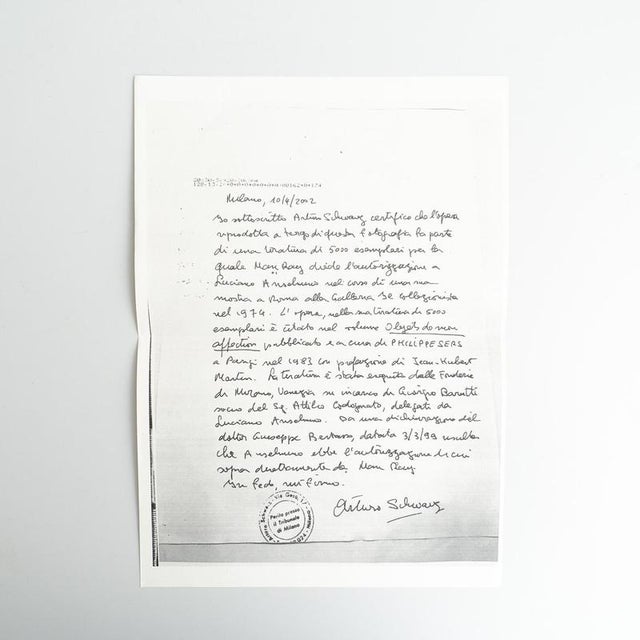 Milano, 10/4/2002
Io sottoscritto Arturo Schwarz certifico che l'opera
riprodotta a tergo di questa fotografia fa parte
di una tiratura di 5000 esemplari per la
quale Man Ray diede l'autorizzazione a
Luciano Anselmino nel corso di una sua
mostra a Roma alla Galleria Il Collezionista
nel 1974. L'opera, nella sua tiratura di 5000
esemplari è citato nel volume Objets de mon
affection pubblicato e a cura di PHILIPPE SERS
a Parigi nel 1983 con prefazione di Jean-Hubert
Martin. La tiratura è stata eseguita dalle Fonderie
di Murano, Venezia su incarico di Giorgio
socio del Sg. Attilio Codognato, delegato da
Luciano Anselmino. Da una dichiarazione del
dottor Giuseppe datata 3/3/99 risulta
che Anselmino ebbe l'autorizzazione di cui
sopra direttamente da Man Ray
In fede, mi firmo.
Arturo Schwarz
Perito presso
il Tribunale
di Milano